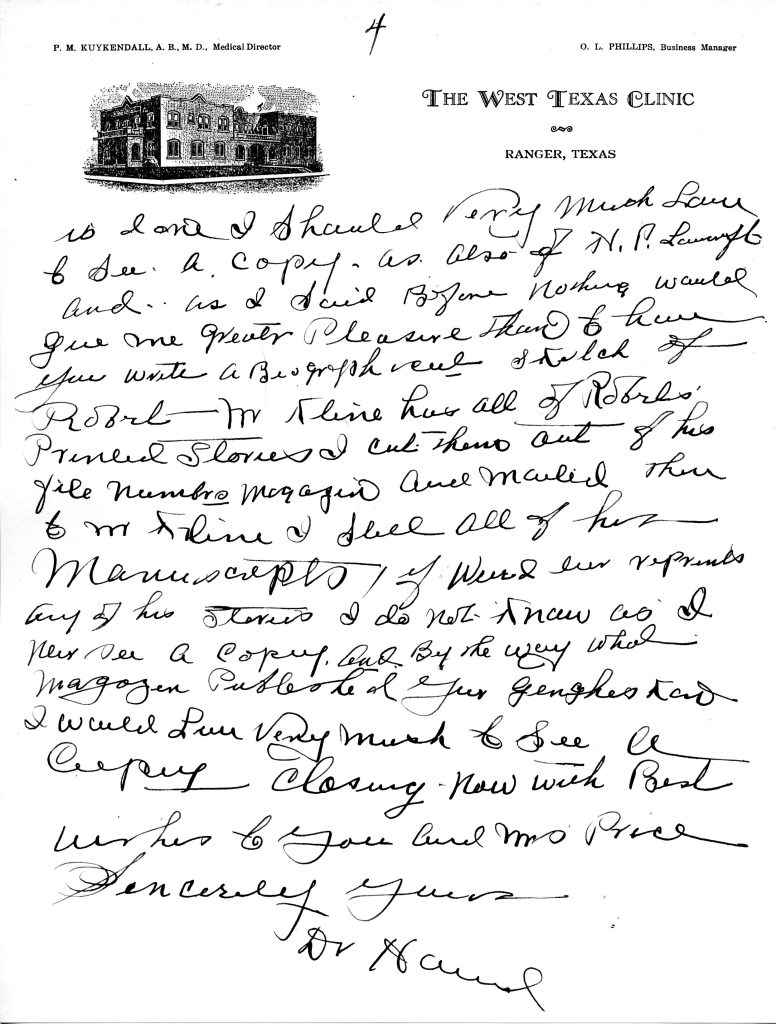 4
P. M. KUYKENDALL, A. B., M. D., Medical Director
O. L. PHILLIPS, Business Manager
THE WEST TEXAS CLINIC
RANGER, TEXAS
is done I Should Very Much Love
to See. A Copy. as also of H. P. Lovecraft
and.. as I Said Before Nothing would
give me Greater Pleasure than to have
you write a Biographical Sketch of
Robert — Mr Kline has all of Roberts
Printed Stories I cut them out of his
file Numbers Magazine and Mailed them
to Mr Kline I all of his
Manuscripts / if Weird ever reprints
any of his stories I do not know as I
never see a Copy. and. By the way what
magazin Published your Genghis Kan
I would Love Very much to See a
Copy Closing now with Best
wishes to you and Mrs Price
Sincerely yours
Dr Howard